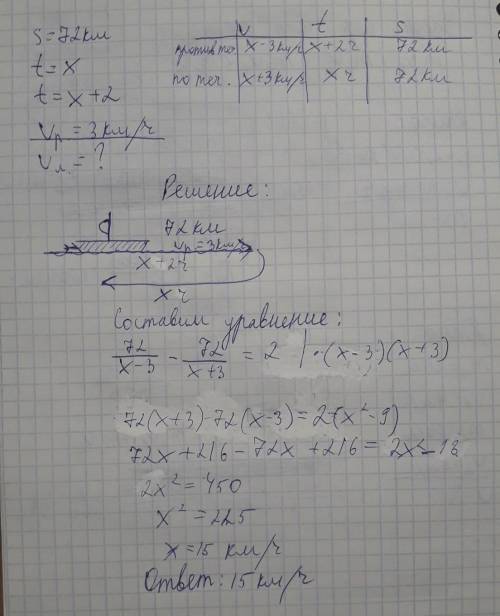 S = 72 км
t = x
t = x + 2
Vр = 3 км/ч
Vл. = ?
V t S
против теч. x - 3 км/ч x + 2 ч 72 км
по теч. x + 3 км/ч x ч 72 км
Решение:
72 км
Vр = 3 км/ч
x + 2 ч
x ч
Составим уравнение:
72/(x-3) - 72/(x+3) = 2 | · (x-3)(x+3)
72(x+3) - 72(x-3) = 2·(x² - 9)
72x + 216 - 72x + 216 = 2x² - 18
2x² = 450
x² = 225
x = 15 км/ч
Ответ: 15 км/ч